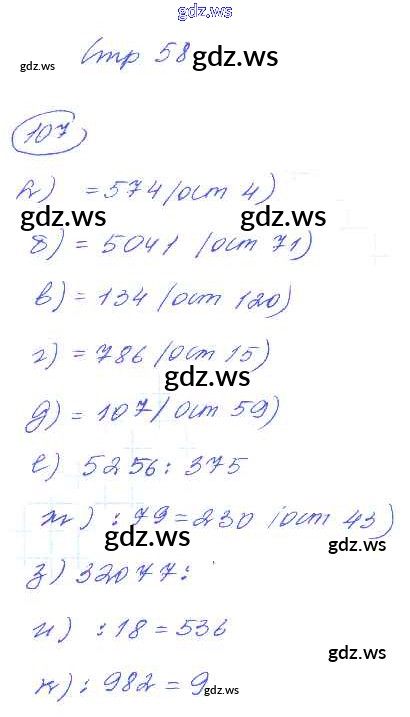 gdz.ws
Стр 58 gdz.ws
gdz.ws
107
а) = 574 (ост 4)
gdz.ws gdz.ws
б) = 5041 (ост 71)
в) = 134 (ост 120)
г) = 786 (ост 15)
gdz.ws
д) = 107 (ост 59)
е) 5256 : 375
ж) : 79 = 230 (ост 43)
gdz.ws gdz.ws
з) 32077 :
и) : 18 = 536
gdz.ws
к) : 982 = 9
gdz.ws